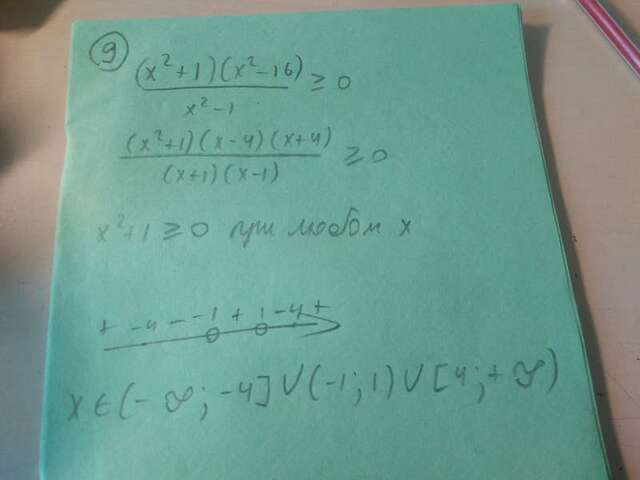 9
(x²+1)(x²-16)/x²-1 ≥ 0
(x²+1)(x-4)(x+4)/(x+1)(x-1) ≥ 0
x²+1 ≥ 0 при любом x
+ -4 - -1 + 1 - 4 +
x ∈ (-∞; -4] ∪ (-1; 1) ∪ [4; +∞)